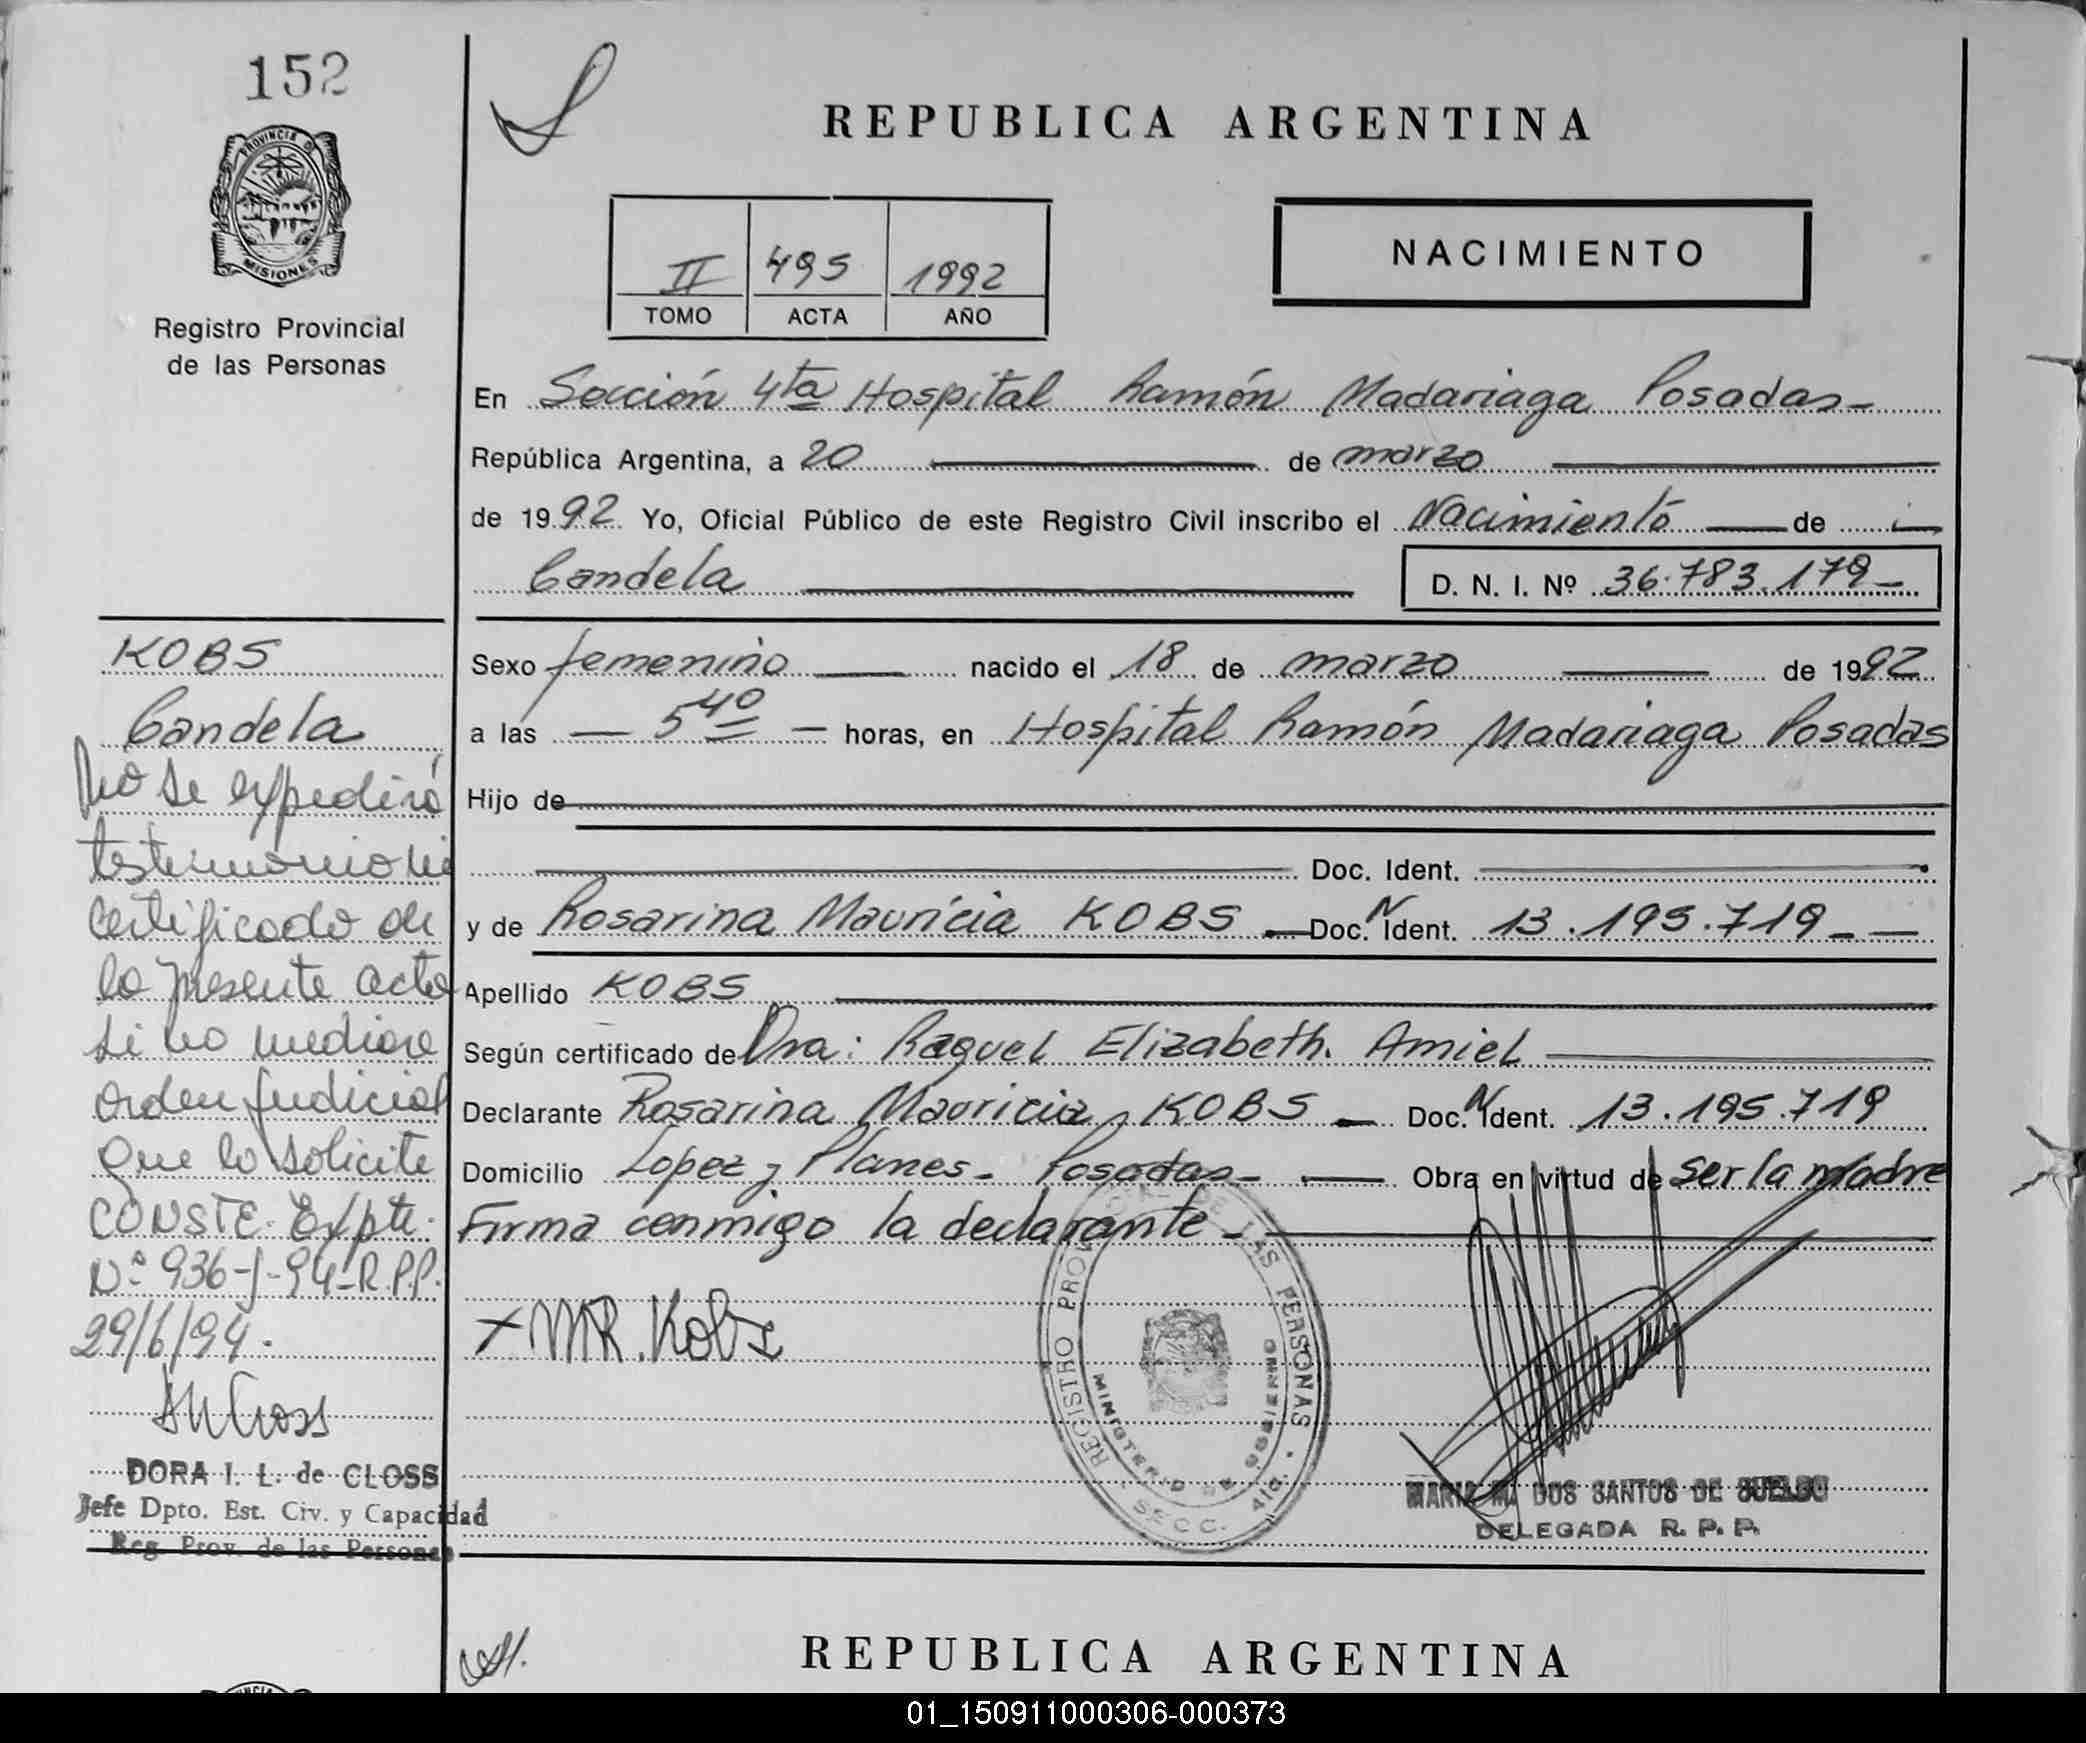 152
PROVINCIA DE
MISIONES
Registro Provincial
de las Personas
REPUBLICA ARGENTINA
II 495 1992
TOMO ACTA AÑO
NACIMIENTO
En Sección 4ta Hospital Ramón Madariaga Posadas-
República Argentina, a 20 de marzo
de 1992 Yo, Oficial Público de este Registro Civil inscribo el Nacimiento de
Candela D. N. I. Nº 36.783.179-
Sexo femenino nacido el 18 de marzo de 1992
a las — 5 40 — horas, en Hospital Ramón Madariaga Posadas
Hijo de
Doc. Ident.
y de Rosarina Mauricia KOBS — Doc. N Ident. 13.195.719 - —
Apellido KOBS
Según certificado de Dra: Raquel Elizabeth. Amiel
Declarante Rosarina Mauricia KOBS — Doc. N Ident. 13.195.719
Domicilio Lopez y Planes- Posadas- — Obra en virtud de ser la madre
Firma conmigo la declarante -
+ MR. Kobs
REGISTRO PROVINCIAL DE LAS PERSONAS
MINISTERIO DE GOBIERNO
SECC. 4ta.
MARIA DOS SANTOS DE SUELDO
DELEGADA R. P. P.
KOBS
Candela
No se expedirá
testimonio ni
certificado de
la presente acta
si no mediare
orden judicial
que lo solicite
CONSTE. Expte.
Nº 936-J-94-R.P.P.
29/6/94.
DORA I. L. de CLOSS
Jefe Dpto. Est. Civ. y Capacidad
Reg. Prov. de las Personas
REPUBLICA ARGENTINA
01_150911000306-000373